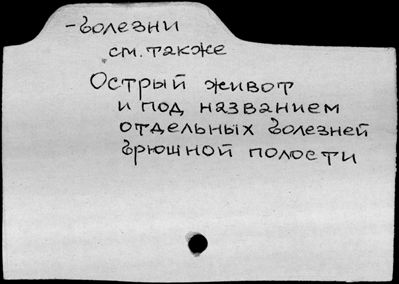 -болезни
см. также
Острый живот
и под названием
отдельных болезней
брюшной полости